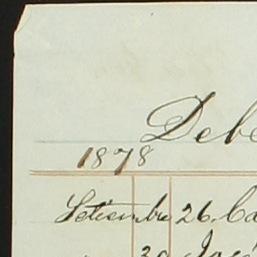 Debe
1878
Setiembre 26
30 José